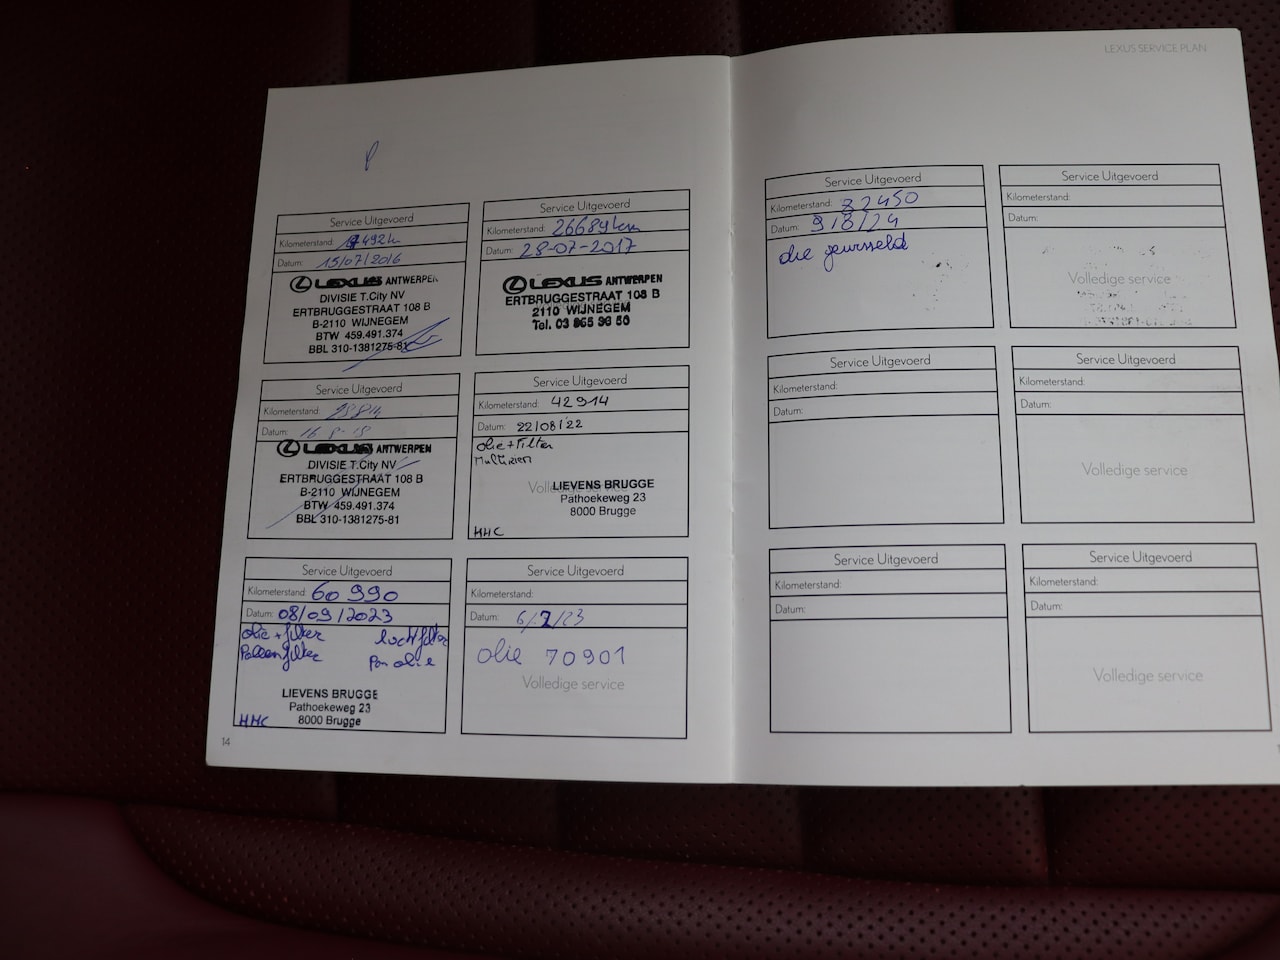 LEXUS SERVICE PLAN
Service Uitgevoerd
Kilometerstand:
Datum: 15/07/2016
LEXUS ANTWERPEN
DIVISIE T.City NV
ERTBRUGGESTRAAT 108 B
B-2110 WIJNEGEM
BTW 459.491.374
BBL 310-1381275-81
Service Uitgevoerd
Kilometerstand: 26689km
Datum: 28-07-2017
LEXUS ANTWERPEN
ERTBRUGGESTRAAT 108 B
2110 WIJNEGEM
Tel. 03
Service Uitgevoerd
Kilometerstand:
Datum:
LEXUS ANTWERPEN
DIVISIE T.City NV
ERTBRUGGESTRAAT 108 B
B-2110 WIJNEGEM
BTW 459.491.374
BBL 310-1381275-81
Service Uitgevoerd
Kilometerstand: 42914
Datum: 22/08/22
olie + Filter
Volledige service
LIEVENS BRUGGE
Pathoekeweg 23
8000 Brugge
HHC
Service Uitgevoerd
Kilometerstand: 60 990
Datum: 08/09/2023
olie + filter luchtfilter
Pollenfilter
LIEVENS BRUGGE
Pathoekeweg 23
8000 Brugge
HHC
Service Uitgevoerd
Kilometerstand:
Datum:
olie 70901
Volledige service
14
Service Uitgevoerd
Kilometerstand: 82450
Datum: 9/8/24
Service Uitgevoerd
Kilometerstand:
Datum:
Volledige service
Service Uitgevoerd
Kilometerstand:
Datum:
Service Uitgevoerd
Kilometerstand:
Datum:
Volledige service
Service Uitgevoerd
Kilometerstand:
Datum:
Service Uitgevoerd
Kilometerstand:
Datum:
Volledige service